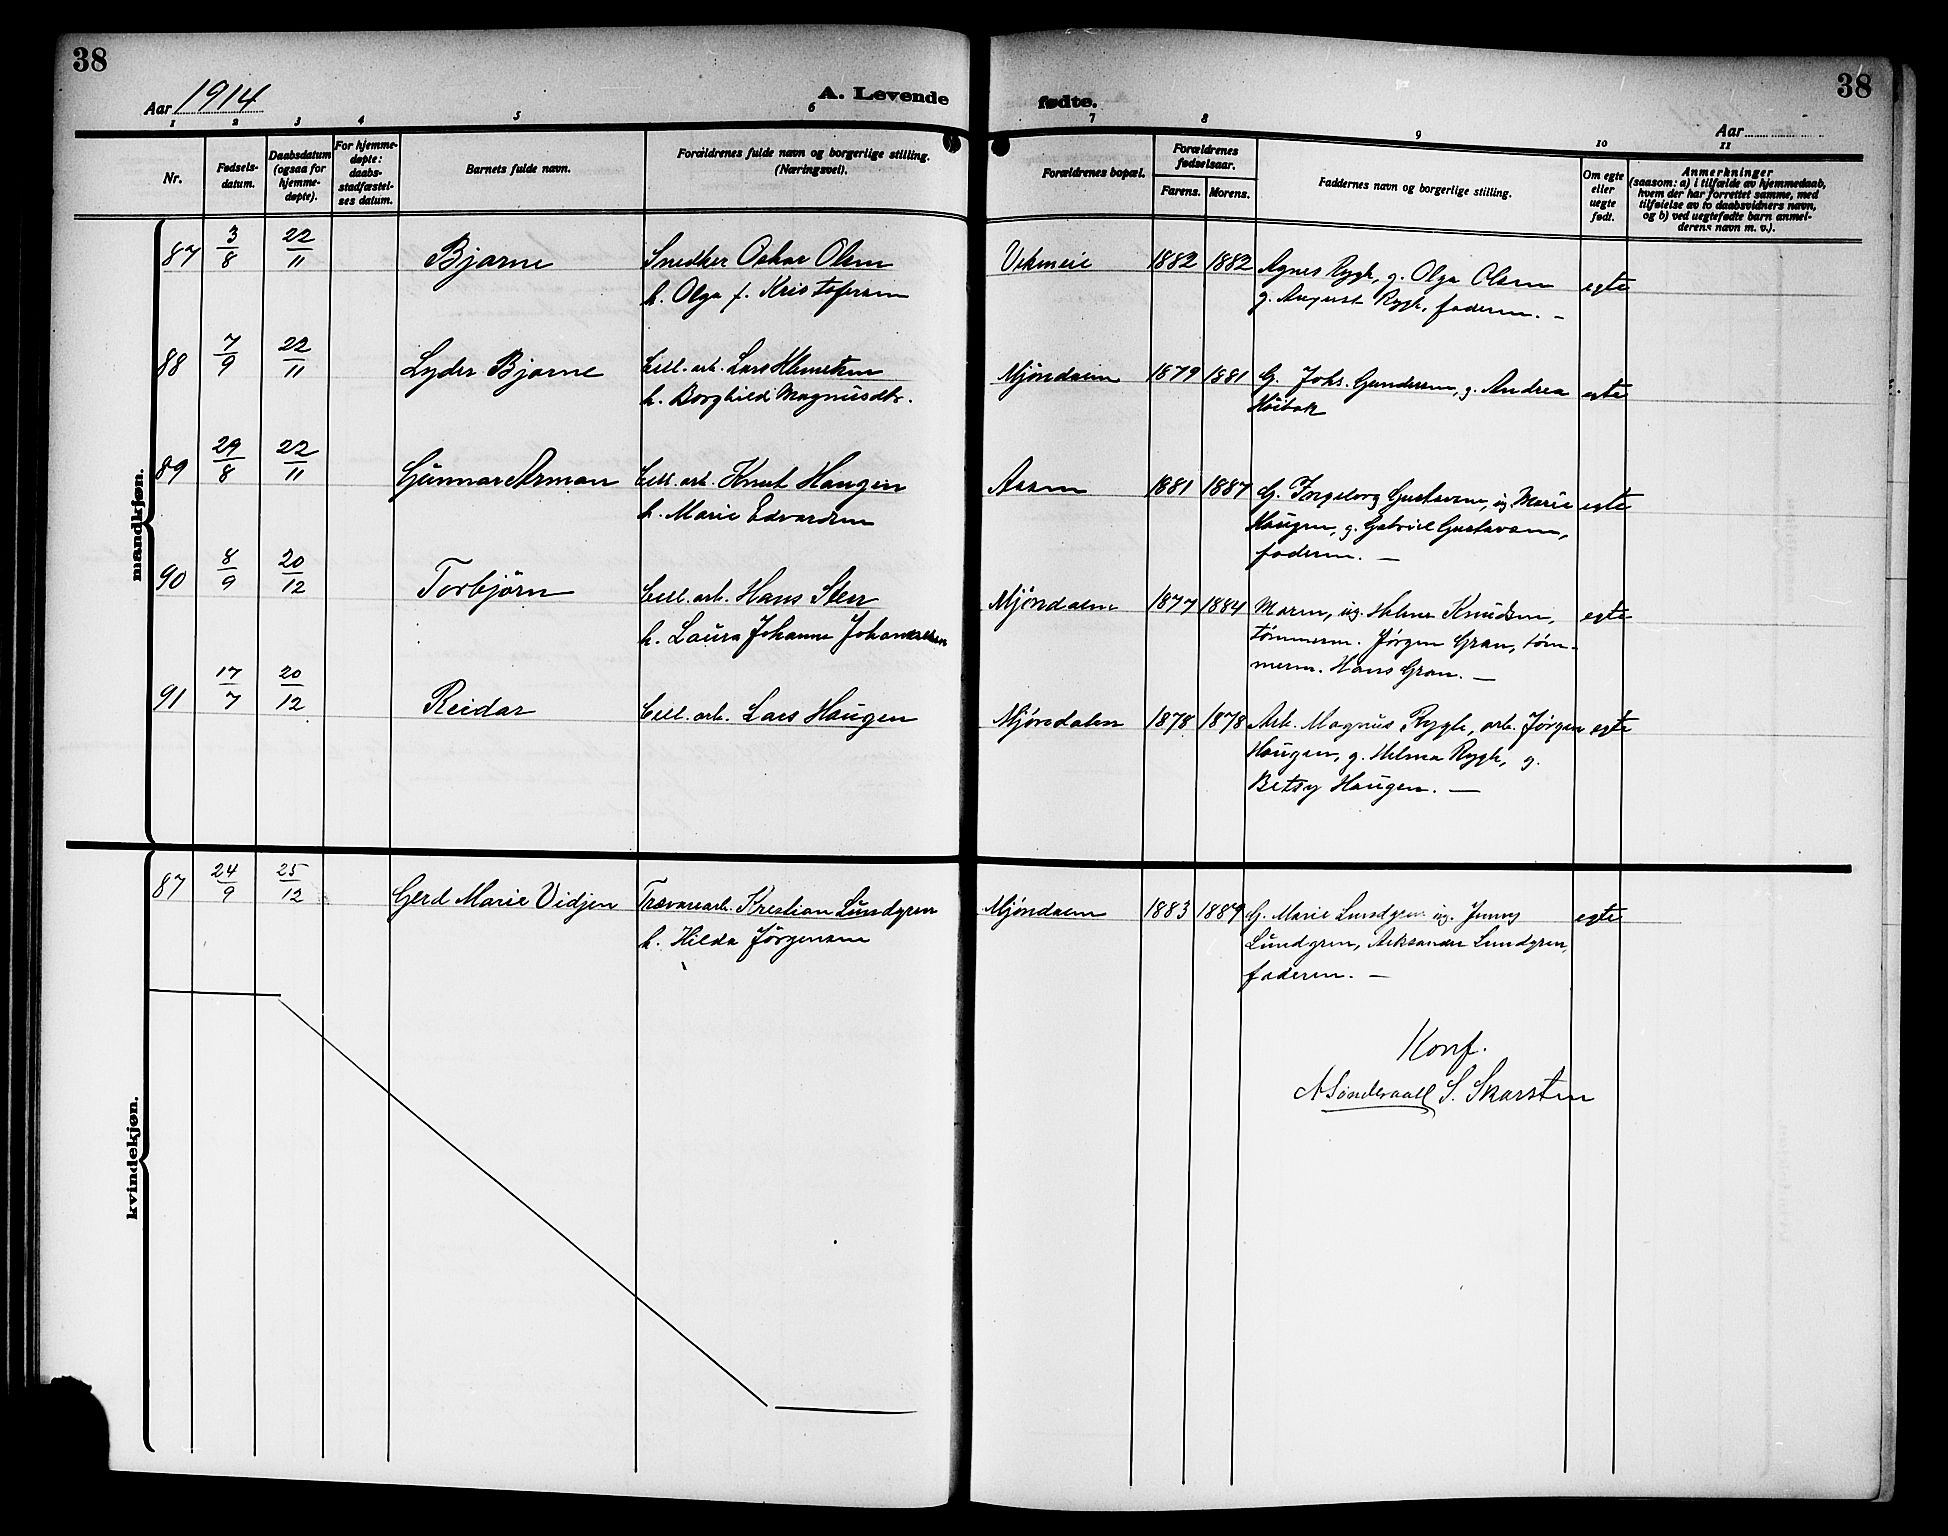 38
Aar 1914
A. Levende
1 2 3 4 5 6
Nr.
Fødsels-
datum.
Daabsdatum
(ogsaa for
hjemme-
døpte).
For hjemme-
døpte:
daabs-
stadfæstel-
ses datum.
Barnets fulde navn.
Forældrenes fulde navn og borgerlige stilling.
(Næringsvei).
mandkjøn.
87 3/8 22/11 Bjarne Snedker Oskar Olsen
h. Olga f. Kristofersen
88 7/9 22/11 Lyder Bjarne Cell. arb. Lars
h. Borghild Magnusdtr.
89 29/8 22/11 Gunnar Arman Cell. arb. Knut Haugen
h. Marie Edvardsen
90 8/9 20/12 Torbjörn Cell. arb. Hans Sten
h. Laura Johanne Johannessen
91 17/7 20/12 Reidar Cell. arb. Lars Haugen
kvindekjøn.
87 24/9 25/12 Gerd Marie Vidjen Trævarearb. Kristian Lundgren
h. Hilda Jörgensen
38
fødte.
Aar
7 8 9 10 11
Forældrenes bopæl.
Forældrenes
fødselsaar.
Farens. Morens.
Faddernes navn og borgerlige stilling.
Om egte
eller
uegte
født.
Anmerkninger
(saasom: a) i tilfælde av hjemmedaab,
hvem der har forrettet samme, med
tilføielse av to daabsvidners navn,
og b) ved uegtefødte barn anmel-
derens navn m. v.).
1882 1882 Agnes Rygh, g. Olga Olsen egte
g. August Rygh, faderen. —
Mjöndalen 1879 1881 G. Johs. Gundersen, g. Andrea egte
Aasen 1881 1887 G. Ingeborg Gustavsen, ug. Marie egte
Haugen, g. Gabriel Gustavsen,
faderen. —
Mjöndalen 1877 1884 Maren, ug. Helene Knudsen, egte
tömmerm. Jörgen Gran, töm-
merm. Hans Gran. —
Mjöndalen 1878 1878 Arb. Magnus Rygh, arb. Jörgen egte
Haugen, g. Helma Rygh, g.
Betsy Haugen. —
Mjöndalen 1883 1889 G. Marie Lundgren ug. Jenny egte
Lundgren, Aleksander Lundgren,
faderen. —
Konf.
A Sönderaall S. Skarsten